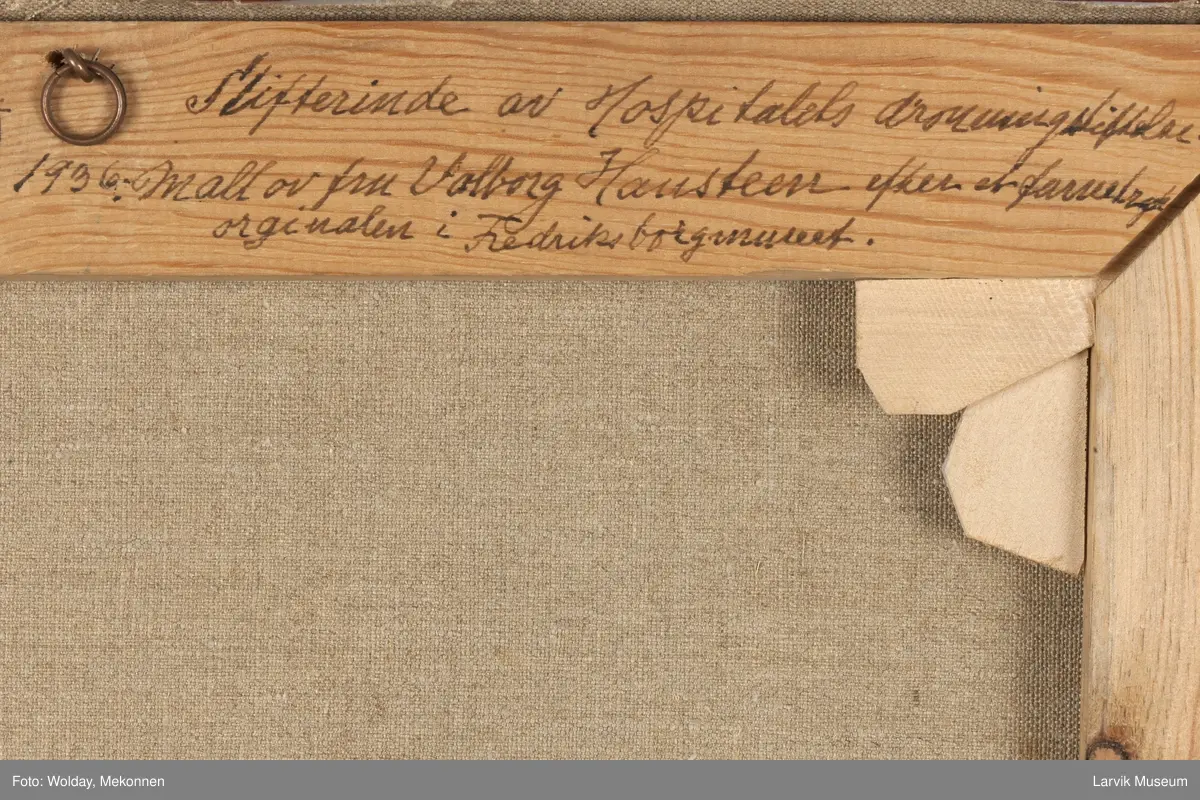 Stifterinde av Hospitalets dronningstiftelse
1936. Malt av fru Valborg Hansteen efter et farvetryk
orginalen i Fredriksborgmuseet.
Foto: Wolday, Mekonnen
Larvik Museum